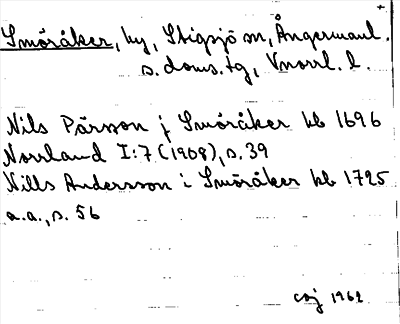 Smöråker, by, Stigsjö sn, Ångermanl.
s. doms. tg, Vnorrl. l.
Nils Pärsson j Smöråker kb 1696
Norrland I:7 (1908), s. 39
Nills Andersson i Smöråker kb 1725
a.a., s. 56
csj 1962